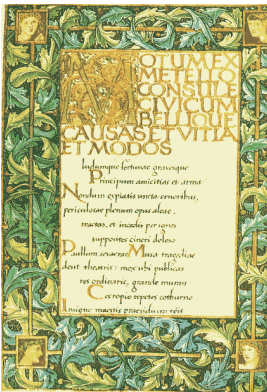 MOTUM EX
METELLO
CONSULE
CIVICUM
BELLIQUE
CAUSAS ET VITIA
ET MODOS
ludumque fortunae gravesque
Principum amicitias et arma
Nondum expiatis uncta cruoribus,
periculosae plenum opus aleae,
tractas, et incedis per ignes
suppositos cineri doloso
Paullum severae Musa tragoediae
desit theatris: mox ubi publicas
res ordinaris, grande munus
Cecropio repetes cothurno
Insigne maestis praesidium reis